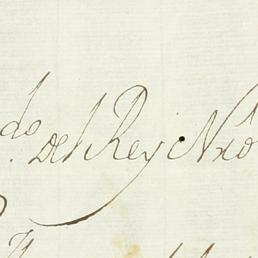 do. del Rey Nro